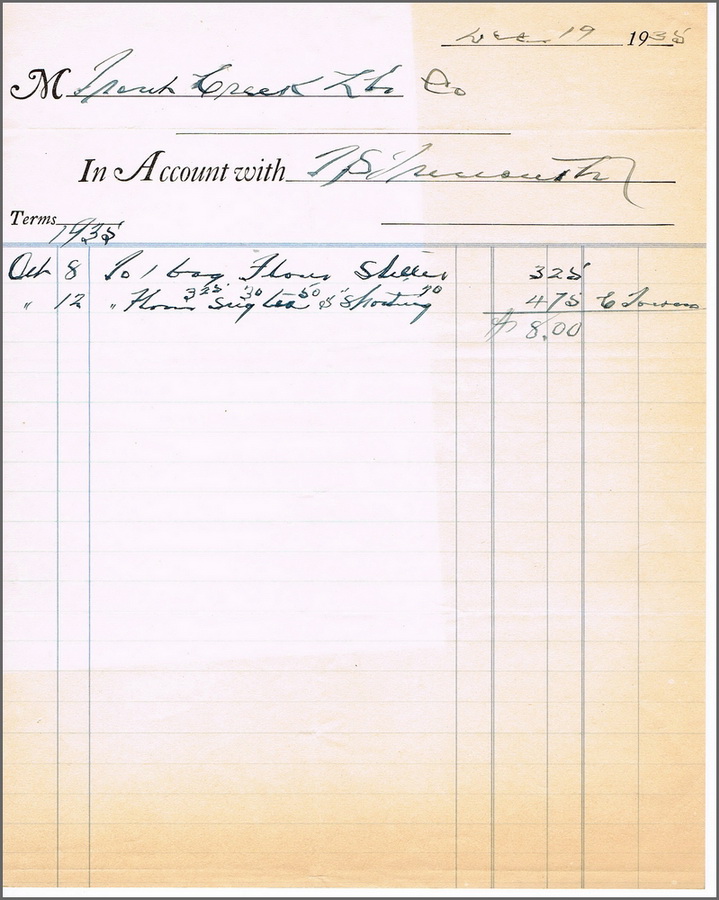 Dec 19 1935
M Trout Creek Lbr Co
In Account with
Terms
1935
Oct 8 To 1 bag Flour 325
" 12 " Flour 325 Sug 30 tea 50 & Shortning 70 475
$ 8.00